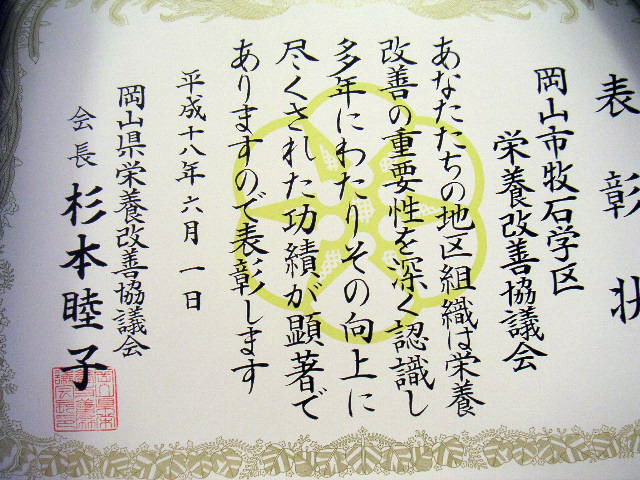 表彰状
岡山市牧石学区
栄養改善協議会
あなたたちの地区組織は栄養
改善の重要性を深く認識し
多年にわたりその向上に
尽くされた功績が顕著で
ありますので表彰します
平成十八年六月一日
岡山県栄養改善協議会
会長 杉本睦子